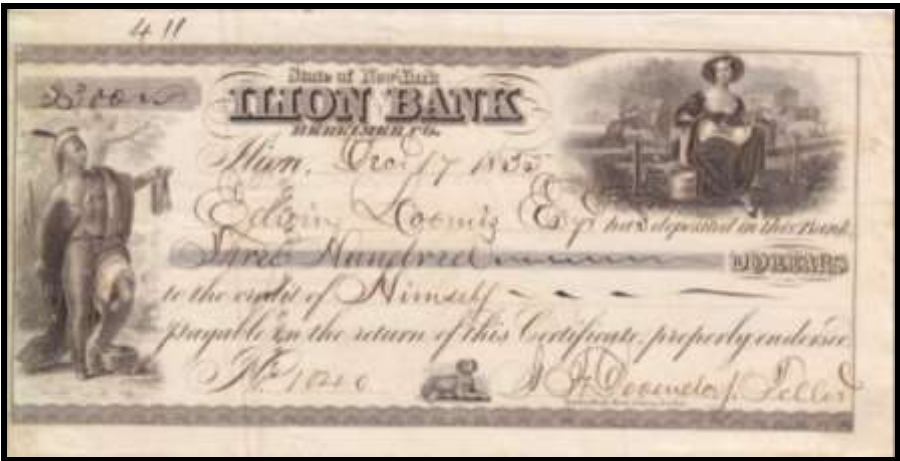 4 11
$300
State of New York
ILION BANK
HERKIMER CO.
Ilion, Dec. 17 1855
Edwin Loomis Esq has deposited in this Bank
Three Hundred DOLLARS
to the credit of Himself
payable on the return of this Certificate, properly endorsed
No. 1040 Teller